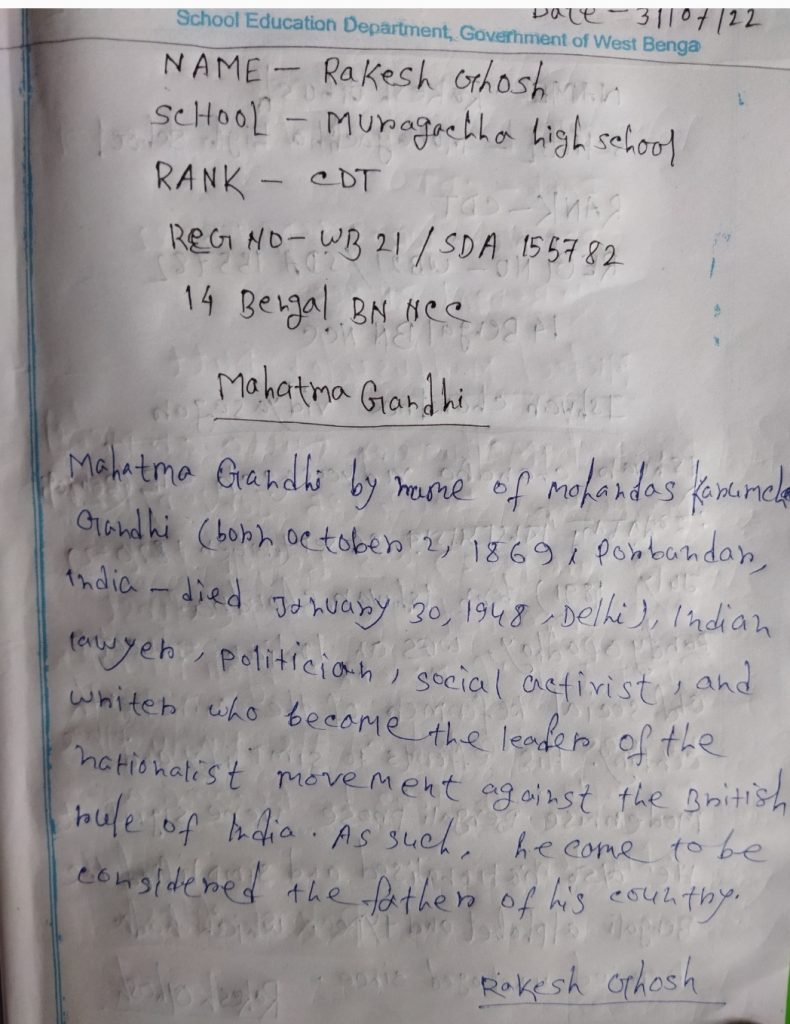 Date - 31/07/22
School Education Department, Government of West Benga
NAME - Rakesh Ghosh
SCHOOL - Muragachha high school
RANK - CDT
REG NO - WB 21 / SDA 155782
14 Bengal BN NCC
Mahatma Gandhi
Mahatma Gandhi by name of mohandas Karamch
Gandhi (born october 2, 1869, Porbandar,
India - died January 30, 1948, Delhi), Indian
lawyer, politician, social activist, and
writer who become the leader of the
nationalist movement against the British
rule of India. As such, he come to be
considered the father of his country.
Rakesh Ghosh